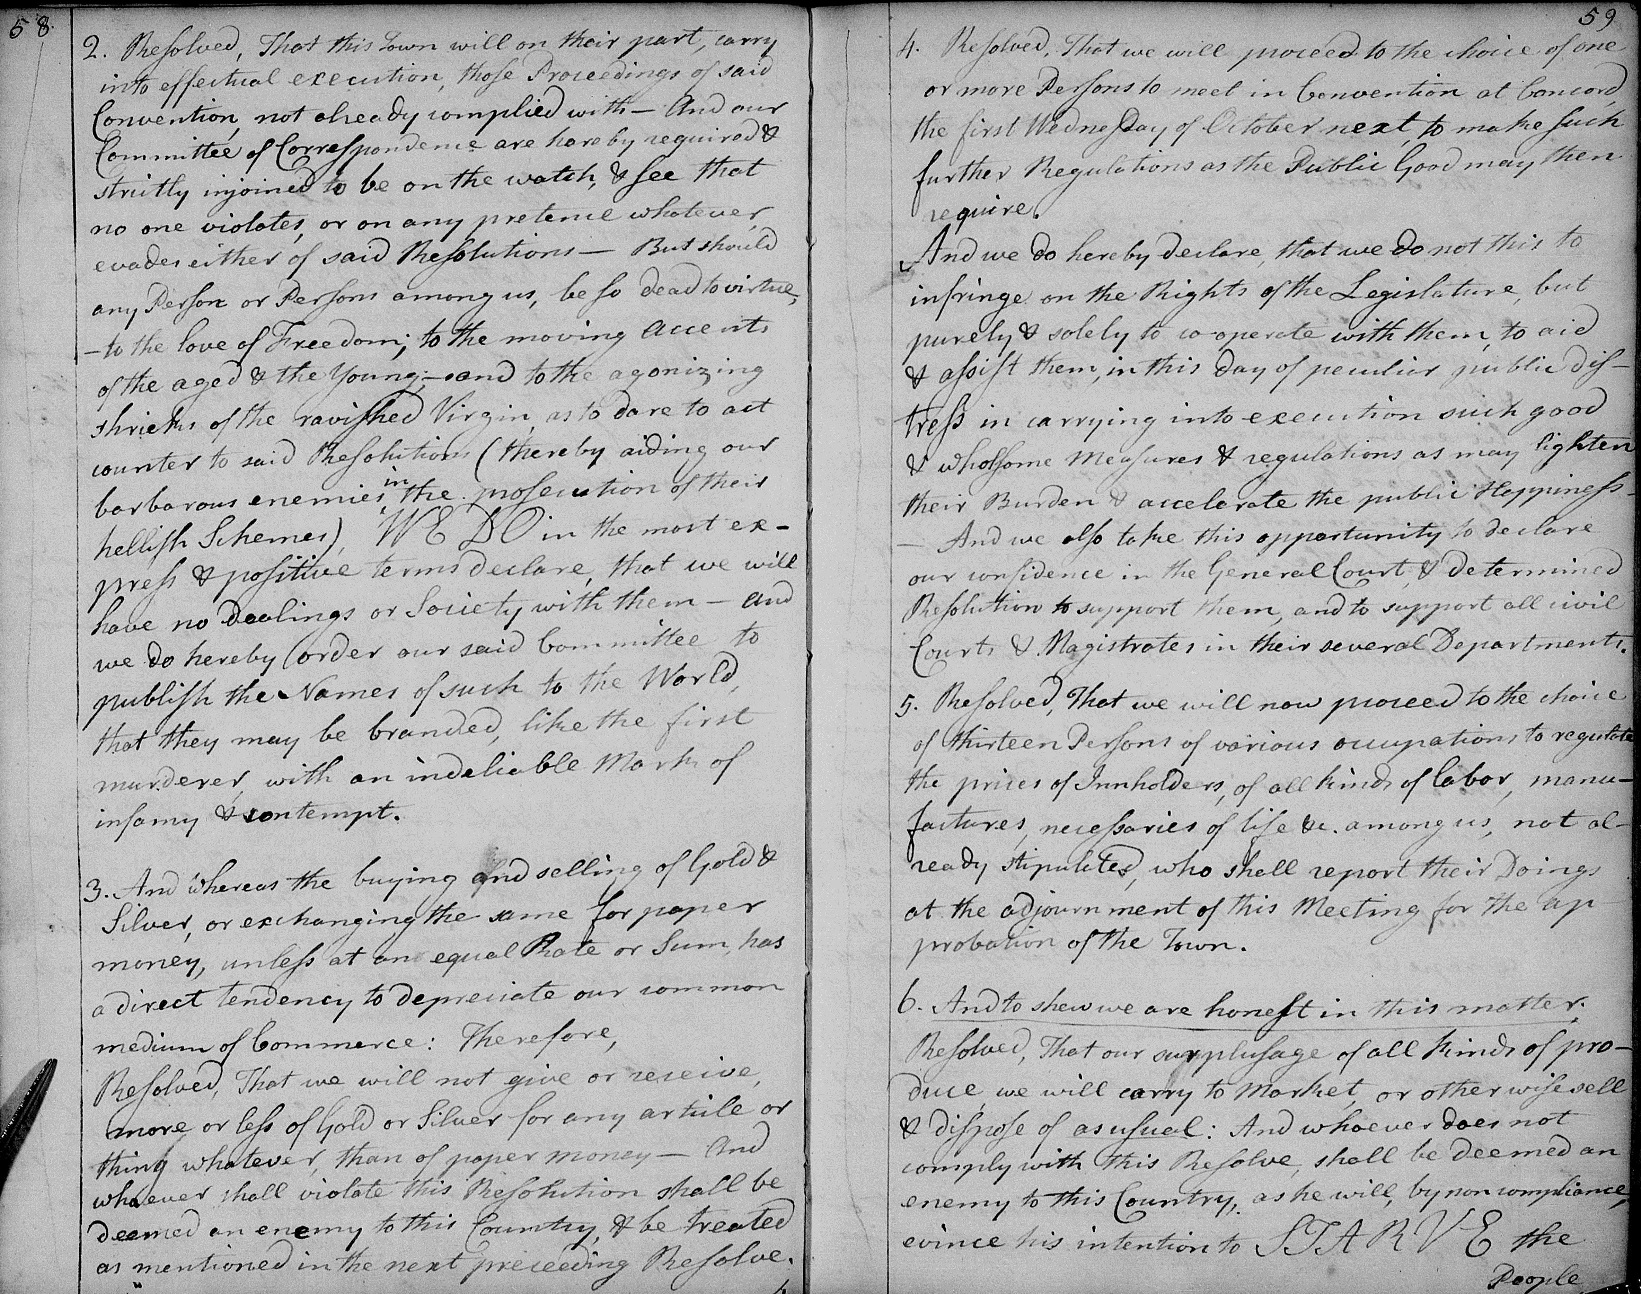 58.
2. Resolved, That this Town will on their part, carry
into effectual execution, those Proceedings of said
Convention, not already complied with — And our
Committee of Correspondence are hereby required &
strictly injoined to be on the watch, & see that
no one violates, or on any pretence whatever,
evades either of said Resolutions — But should
any Person or Persons among us, be so dead to virtue,
— to the love of Freedom; to the moving accents
of the aged & the Young; — and to the agonizing
shrieks of the ravished Virgin, as to dare to act
counter to said Resolutions (thereby aiding our
barbarous enemies, in the prosecution of their
hellish Schemes), WE DO in the most ex-
press & positive terms declare, that we will
have no Dealings or Society with them — and
we do hereby order our said Committee to
publish the Names of such to the World,
that they may be branded, like the first
murderer, with an indeliable Mark of
infamy & contempt.
3. And whereas the buying and selling of Gold &
Silver, or exchanging the same for paper
money, unless at an equal Rate or Sum, has
a direct tendency to depreciate our common
medium of Commerce: Therefore,
Resolved, That we will not give or receive,
more or less of Gold or Silver for any article or
thing whatever, than of paper money — And
whoever shall violate this Resolution shall be
deemed an enemy to this Country, & be treated
as mentioned in the next preceeding Resolve.
4
59
4. Resolved, That we will proceed to the choice of one
or more Persons to meet in Convention at Concord,
the first Wednesday of October next, to make such
further Regulations as the Public Good may then
require.
And we do hereby declare, that we do not this to
infringe on the Rights of the Legislature, but
purely & solely to co-operate with them, to aid
& assist them, in this day of peculier public dis-
tress in carrying into execution such good
& wholsome Measures & regulations as may lighten
their Burden & accelerate the public Happiness —
— And we also take this opportunity to declare
our confidence in the General Court, & determined
Resolution to support them, and to support all civil
Courts & Magistrates in their several Departments.
5. Resolved, That we will now proceed to the choice
of thirteen Persons of various occupations to regulate
the prices of Innholders, of all kinds of labor, manu-
factures, necessaries of life &c. among us, not al-
ready stipulated, who shall report their Doings
at the adjournment of this Meeting for the ap-
probation of the Town.
6. And to shew we are honest in this matter;
Resolved, That our surplusage of all kinds of pro-
duce we will carry to Market, or otherwise sell
& dispose of as usual: And whoever does not
comply with this Resolve, shall be deemed an
enemy to this Country, as he will, by non compliance,
evince his intention to STARVE the
People